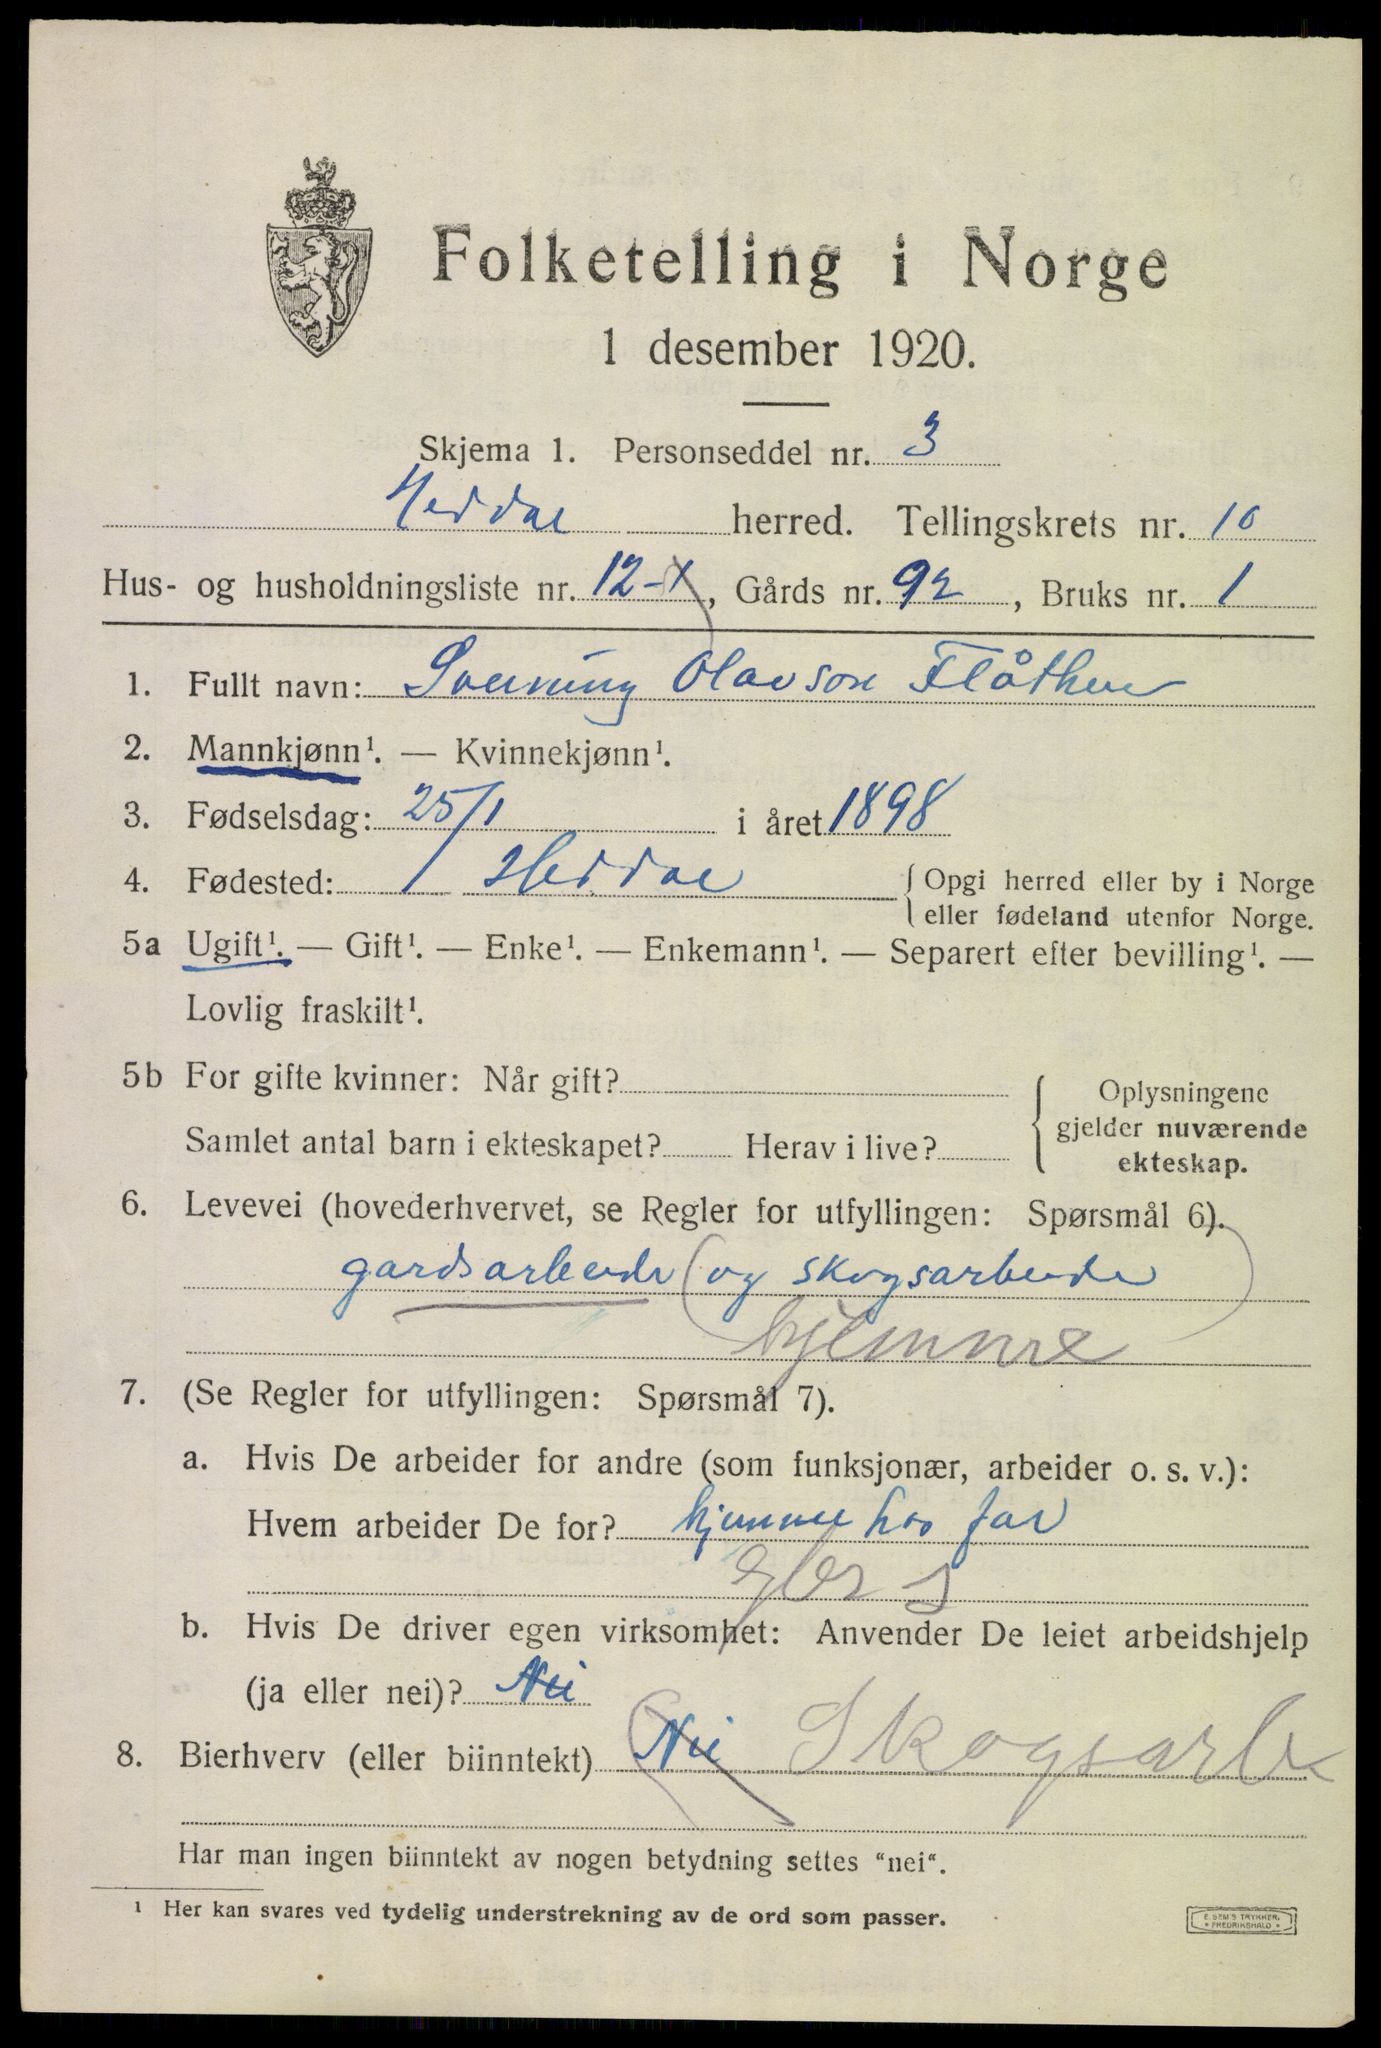 Folketelling i Norge
1 desember 1920.
Skjema 1. Personseddel nr. 3
Heddal herred. Tellingskrets nr. 10
Hus- og husholdningsliste nr. 12-1, Gårds nr. 92, Bruks nr. 1
1. Fullt navn: Svenning Olavson Flåthen
2. Mannkjønn¹. — Kvinnekjønn¹.
3. Fødselsdag: 25/1 i året 1898
4. Fødested: Heddal { Opgi herred eller by i Norge
eller fødeland utenfor Norge.
5a Ugift¹. — Gift¹. — Enke¹. — Enkemann¹. — Separert efter bevilling¹. —
Lovlig fraskilt¹.
5b For gifte kvinner: Når gift?
Samlet antal barn i ekteskapet? Herav i live?
{ Oplysningene
gjelder nuværende
ekteskap.
6. Levevei (hovederhvervet, se Regler for utfyllingen: Spørsmål 6).
gardsarbeide (og skogsarbeide)
hjemme
7. (Se Regler for utfyllingen: Spørsmål 7).
a. Hvis De arbeider for andre (som funksjonær, arbeider o. s. v.):
Hvem arbeider De for? hjemme hos far
b. Hvis De driver egen virksomhet: Anvender De leiet arbeidshjelp
(ja eller nei)? Nei
8. Bierhverv (eller biinntekt) (Nei Skogsarb
Har man ingen biinntekt av nogen betydning settes “nei“.
¹ Her kan svares ved tydelig understrekning av de ord som passer.
E. SEM'S TRYKKERI
• FREDRIKSHALD •